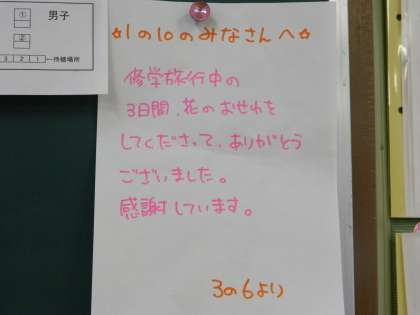 ① 男子
②
3 2 1 ←待機場所
☆1の10のみなさんへ☆
修学旅行中の
3日間、花のおせわを
してくださって、ありがとう
ございました。
感謝しています。
3の6より